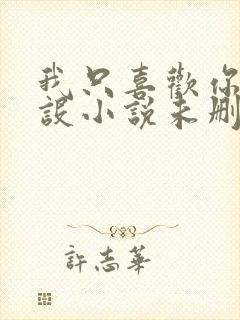 我只喜歡你
設小說未刪
許志華